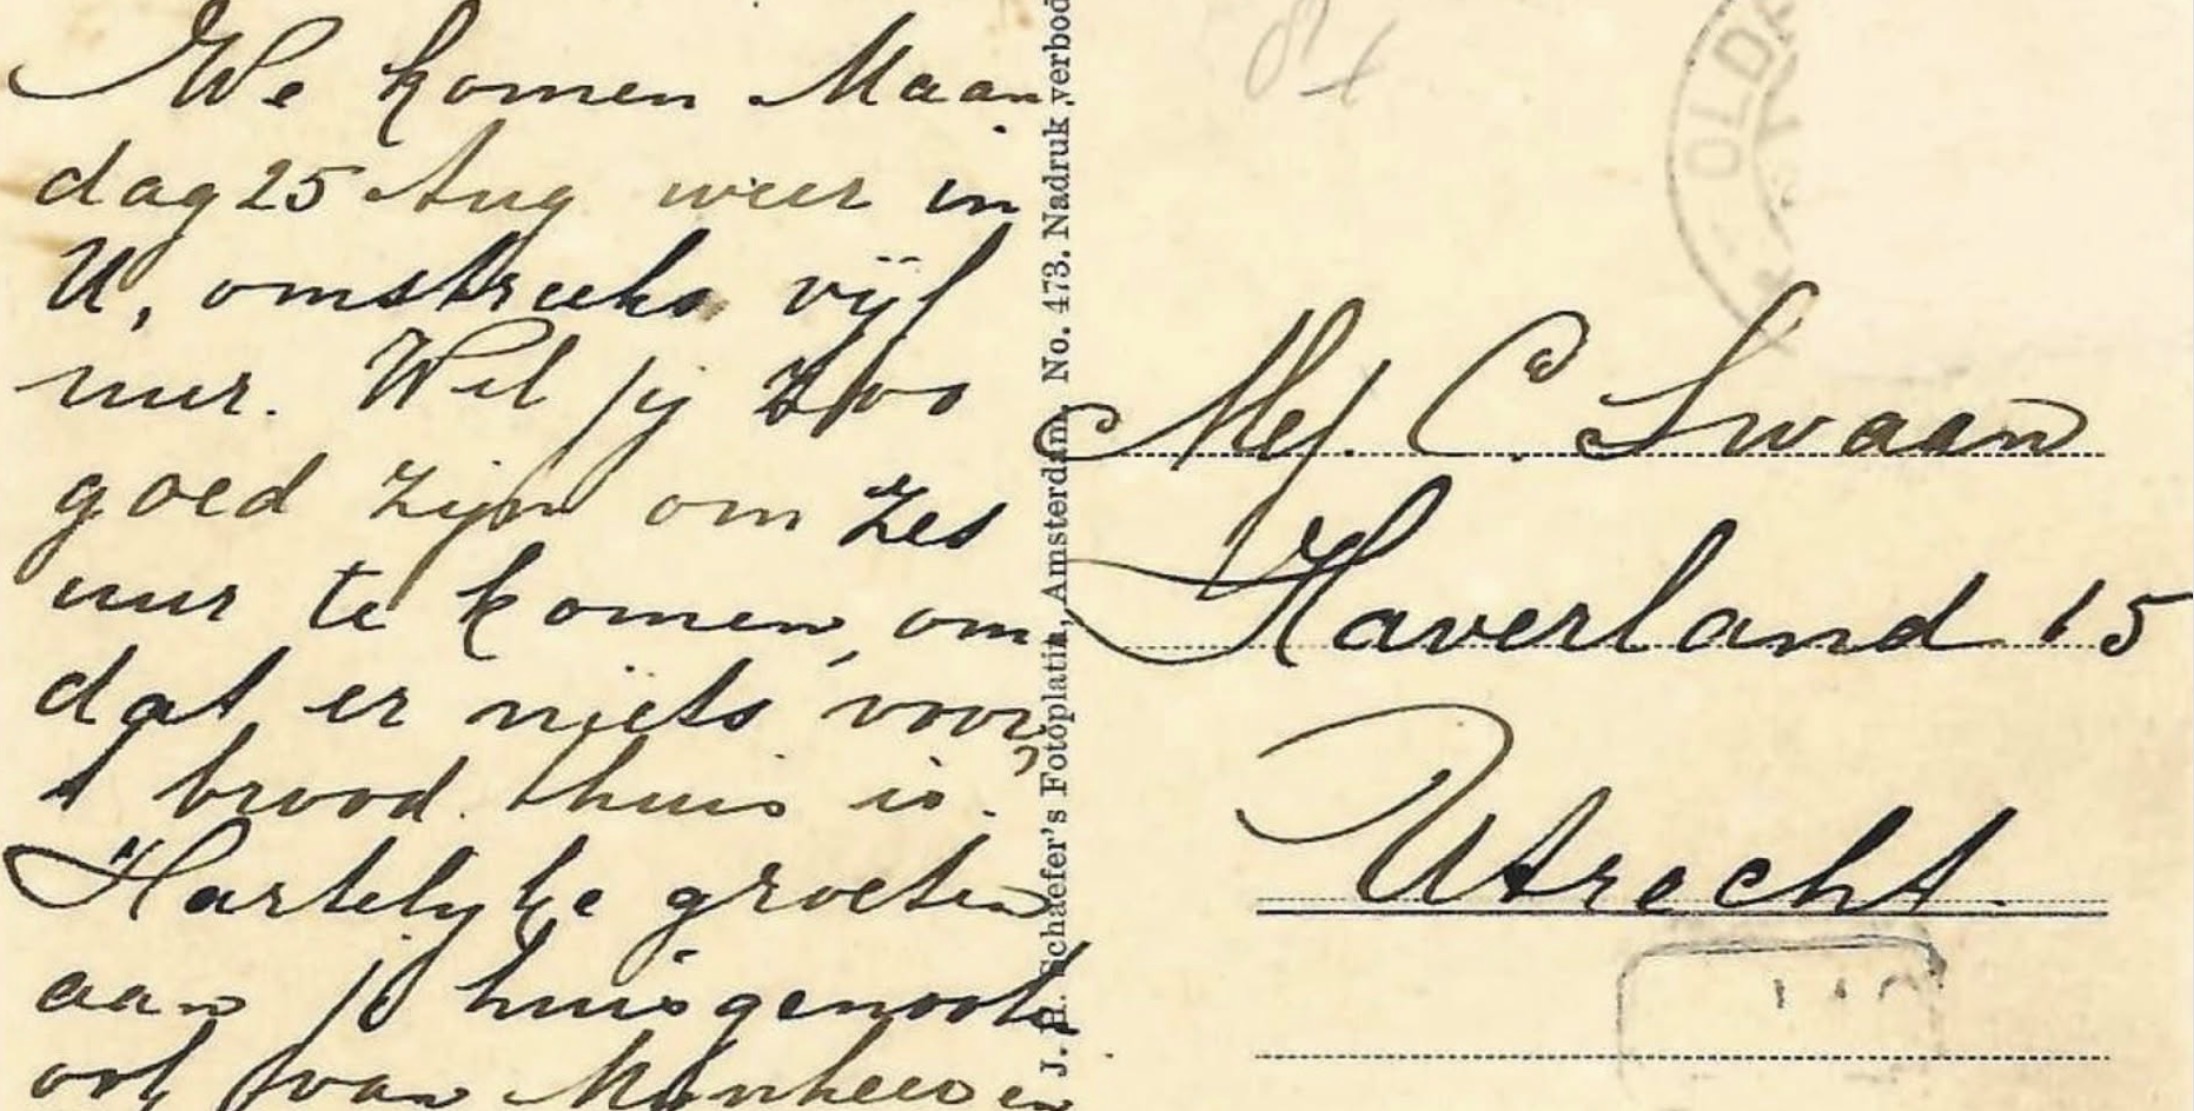 We komen Maan
dag 25 Aug weer in
U, omstreeks vijf
uur. Wil jij zoo
goed zijn om zes
uur te komen, om
dat er niets voor
't brood thuis is.
Hartelijke groeten
aan je huisgenooten
ook van Mijnheer en
J. H. Schaefer's Fotoplatin, Amsterdam. No. 473. Nadruk verbod
OLD
Mej. C. Swaan
Haverland 15
Utrecht.